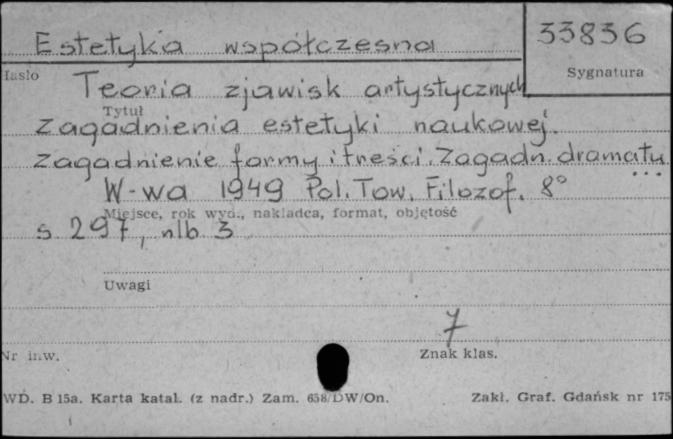 Estetyka współczesna
33836
Hasło
Sygnatura
Teoria zjawisk artystycznych
Tytuł
Zagadnienia estetyki naukowej.
Zagadnienie formy i treści. Zagadn. dramatu
...
W-wa 1949 Pol. Tow. Filozof. 8°
Miejsce, rok wyd., nakładca, format, objętość
s 297, nlb 3
Uwagi
7
Nr inw.
Znak klas.
WD. B 15a. Karta katal. (z nadr.) Zam. 658/DW/On.
Zakł. Graf. Gdańsk nr 175